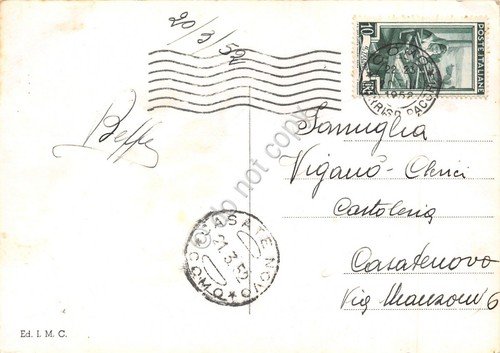 20/3/52
POSTE ITALIANE
10
Beppe
Famiglia
Viganò - Clerici
Cartoleria
Casatenovo
Via Manzoni 6
CASATE NOVO
21.3.52
COMO
Ed. I. M. C.
do not copy